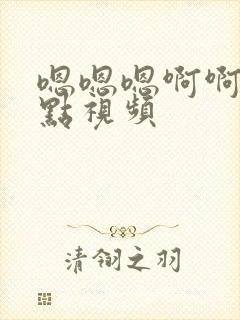 嗯嗯嗯啊啊
點視頻
清翎之羽